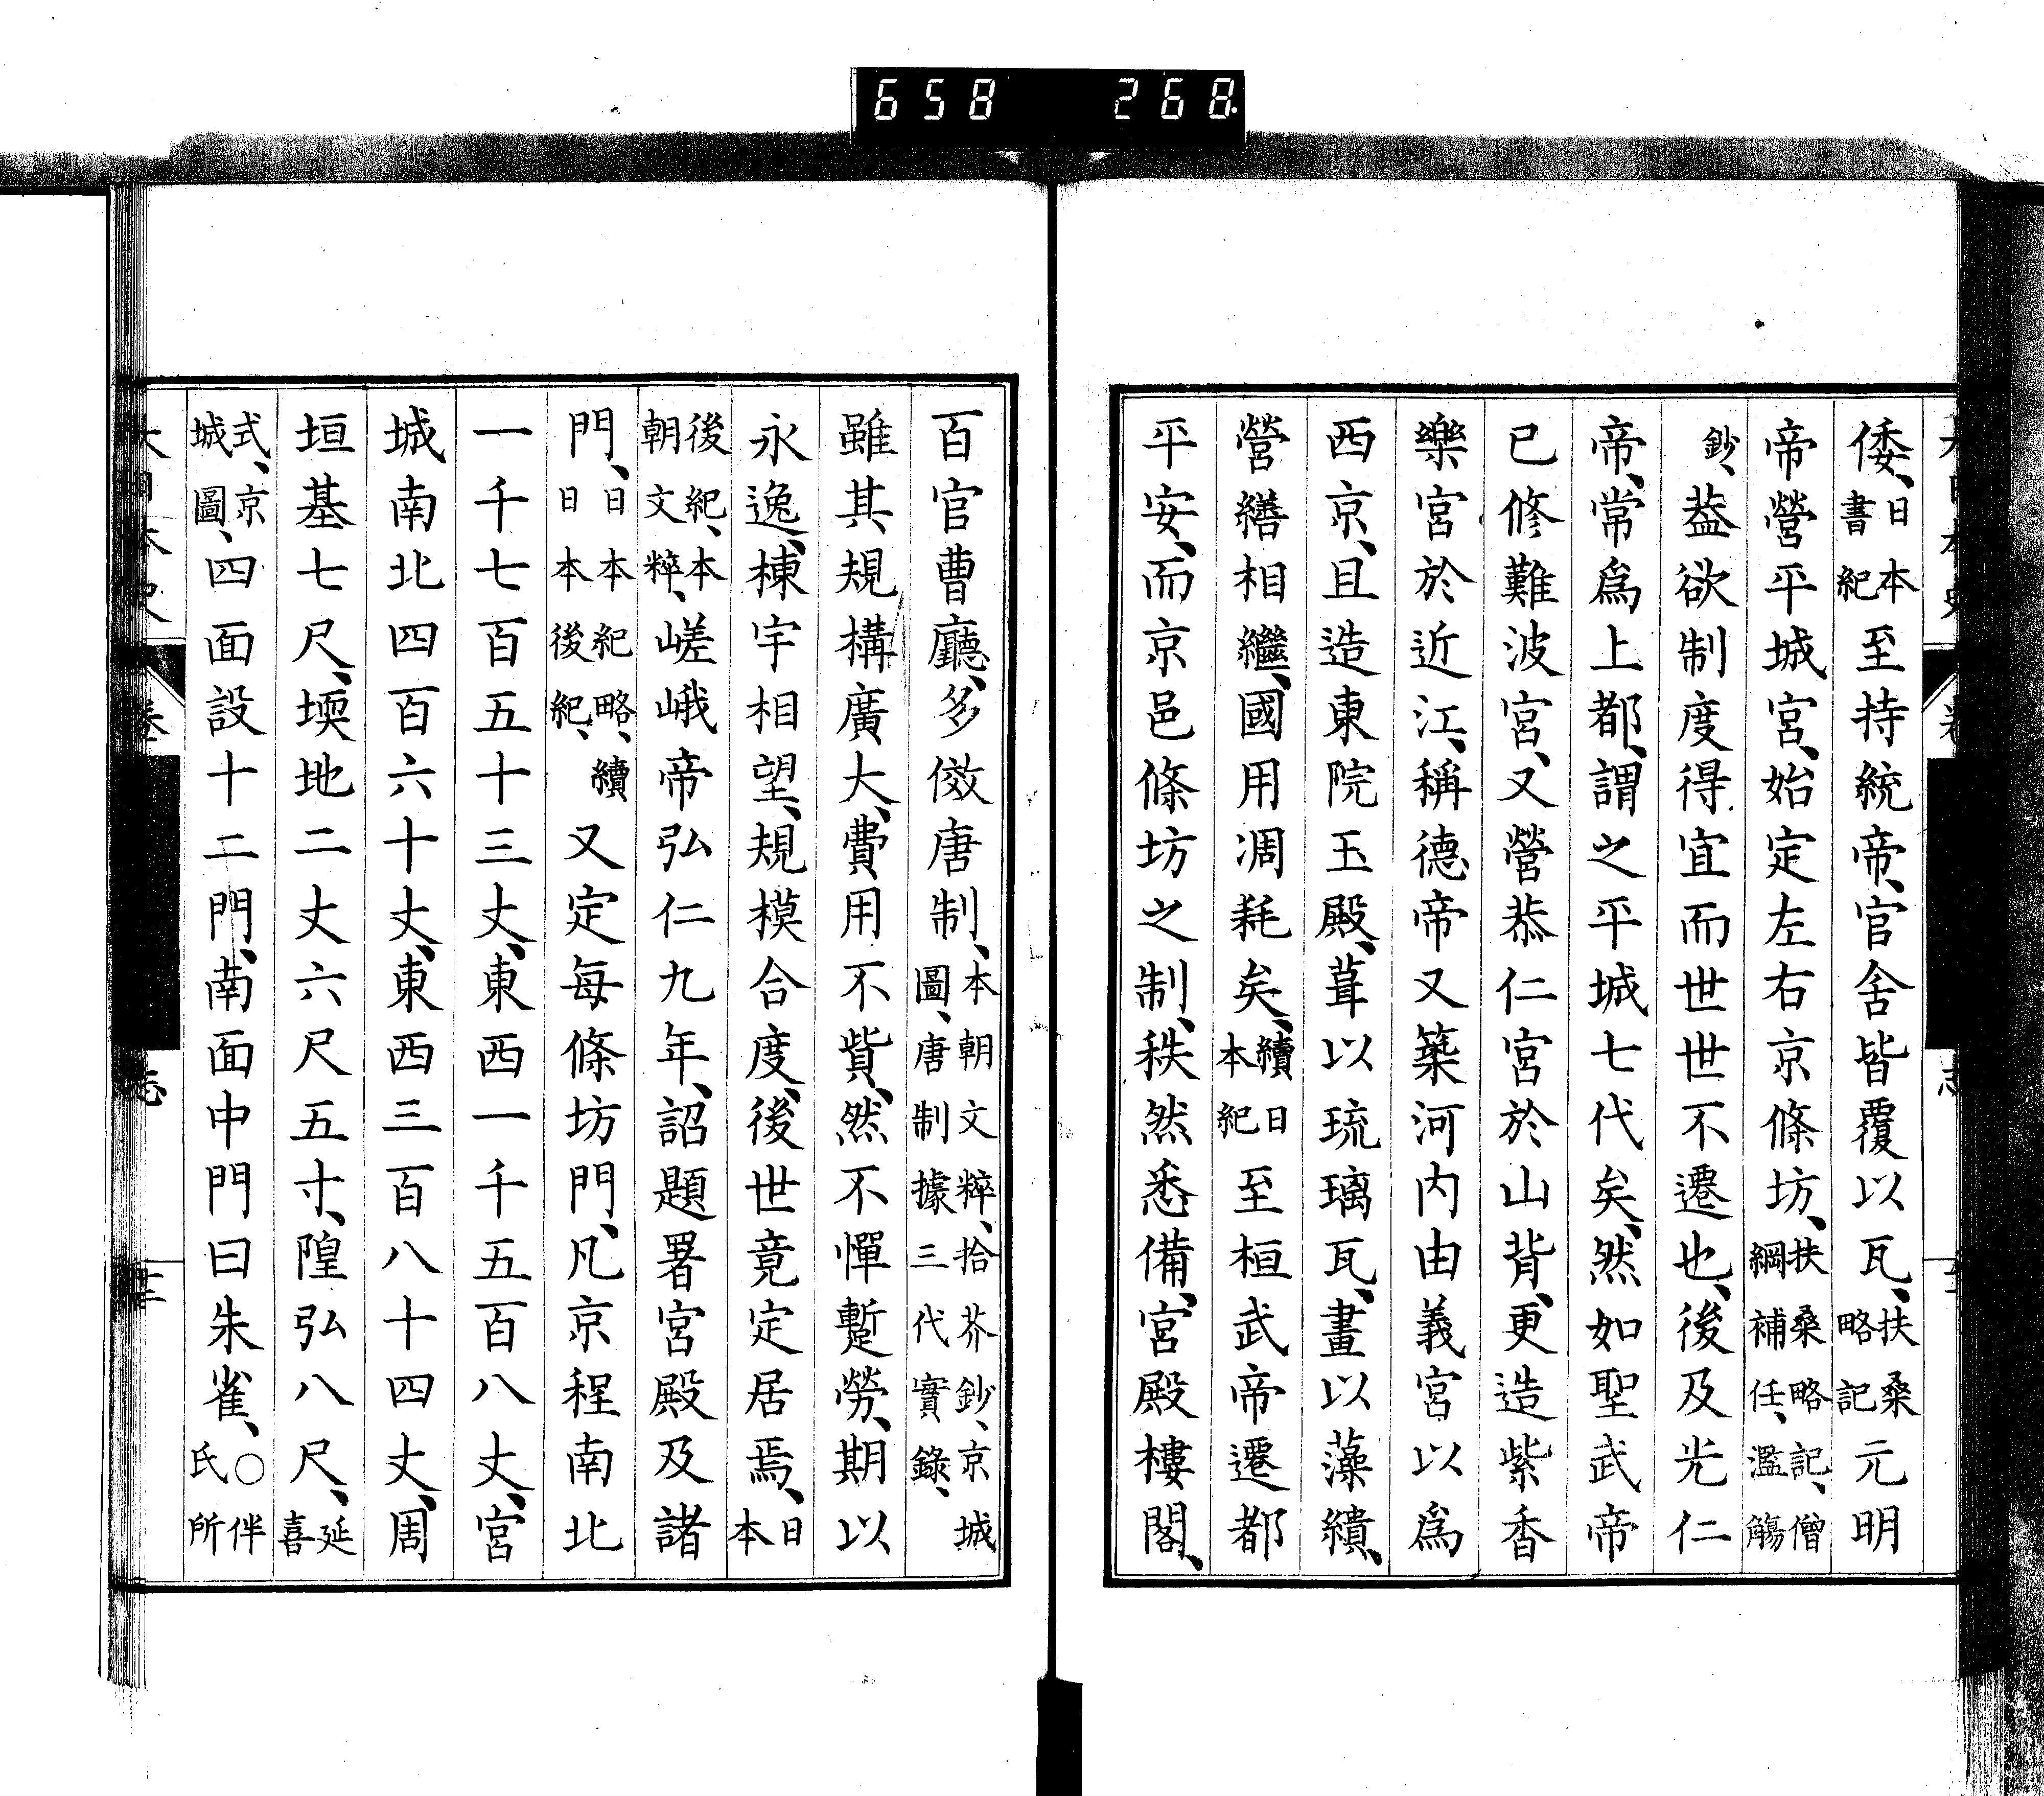 658 268
倭、日本書紀至持統帝、官舍皆覆以瓦、扶桑略記元明
帝營平城宮、始定左右京條坊、扶桑略記、僧綱補任、濫觴
鈔、葢欲制度得宜而世世不遷也、後及光仁
帝、常爲上都、謂之平城七代矣、然如聖武帝
已修難波宮、又營恭仁宮於山背、更造紫香
樂宮於近江、稱德帝又築河內由義宮以爲
西京、且造東院玉殿、葺以琉璃瓦、畫以藻繢、
營繕相繼、國用凋耗矣、續日本紀至桓武帝遷都
平安、而京邑條坊之制、秩然悉備、宮殿樓閣、
百官曹廳、多倣唐制、本朝文粹、拾芥鈔、京城圖、唐制據三代實錄、
雖其規構廣大、費用不貲、然不憚蹔勞、期以
永逸、棟宇相望、規模合度、後世竟定居焉、日本
後紀、本朝文粹、嵯峨帝弘仁九年、詔題署宮殿及諸
門、日本紀略、續日本後紀、又定每條坊門、凡京程南北
一千七百五十三丈、東西一千五百八丈、宮
城南北四百六十丈、東西三百八十四丈、周
垣基七尺、堧地二丈六尺五寸、隍弘八尺、延喜
式、京城圖、四面設十二門、南面中門曰朱雀、○伴氏所
志